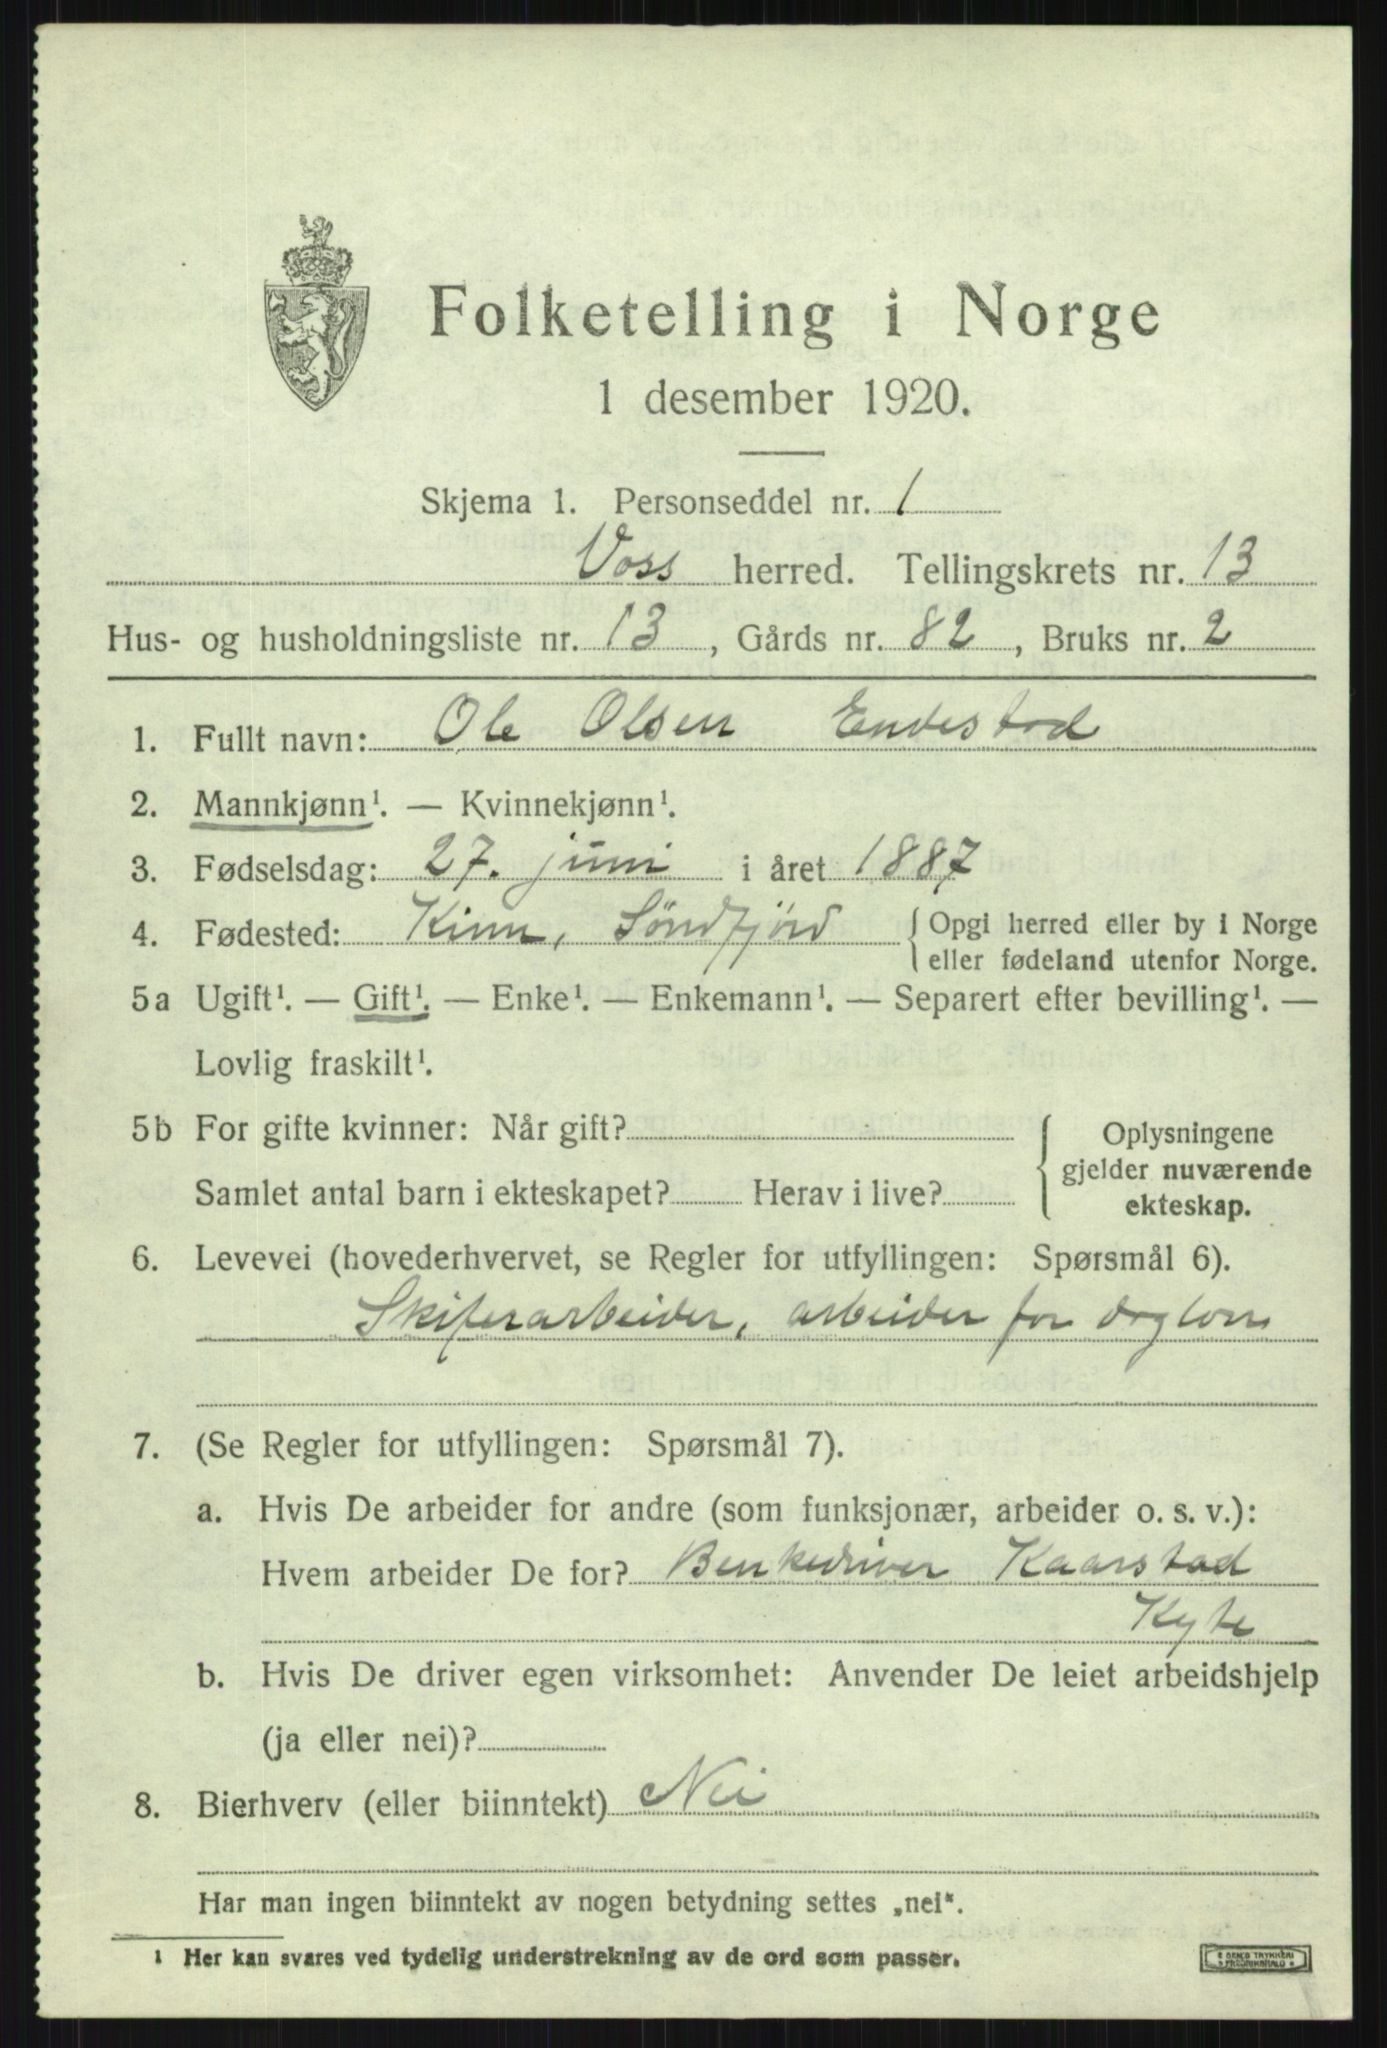 Folketelling i Norge
1 desember 1920.
Skjema 1. Personseddel nr. 1
Voss herred. Tellingskrets nr. 13
Hus- og husholdningsliste nr. 13, Gårds nr. 82, Bruks nr. 2
1. Fullt navn: Ole Olsen Endestad
2. Mannkjønn¹. — Kvinnekjønn¹.
3. Fødselsdag: 27. juni i året 1887
4. Fødested: Kinn, Söndfjörd { Opgi herred eller by i Norge
eller fødeland utenfor Norge.
5a Ugift¹. — Gift¹. — Enke¹. — Enkemann¹. — Separert efter bevilling¹. —
Lovlig fraskilt¹.
5b For gifte kvinner: Når gift?
Samlet antal barn i ekteskapet? Herav i live?
{ Oplysningene
gjelder nuværende
ekteskap.
6. Levevei (hovederhvervet, se Regler for utfyllingen: Spørsmål 6).
Skiferarbeider, arbeider for daglønn
7. (Se Regler for utfyllingen: Spørsmål 7).
a. Hvis De arbeider for andre (som funksjonær, arbeider o. s. v.):
Hvem arbeider De for? Benkedriver Kaarstad
Kyte
b. Hvis De driver egen virksomhet: Anvender De leiet arbeidshjelp
(ja eller nei)?
8. Bierhverv (eller biinntekt) Nei
Har man ingen biinntekt av nogen betydning settes „nei".
1 Her kan svares ved tydelig understrekning av de ord som passer.